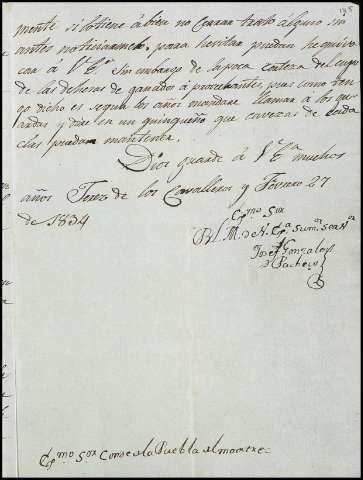 mente si lo tiene á bien no Cerrar trato alguno sin
antes noticiarmelo, para hevitar puedan hequivo-
car á V. E.ª Sin embargo de la poca certeza del cupo
de las deheras de ganados á provechantes, pues como ten-
go dicho es segun los años mandare llamar á los gu-
ardas y dire en un quinqueño que cavezas de cada
clas puedan mantener.
Dios guarde á V. E.ª muchos
años Jerez de los Cavalleros y Febrero 27
de 1834
Exmo Sor
B. L. M. de V. E.ª su mor servor
Josef Gonzalez
Pacheco
Exmo Sor Conde de la Puebla del maestre